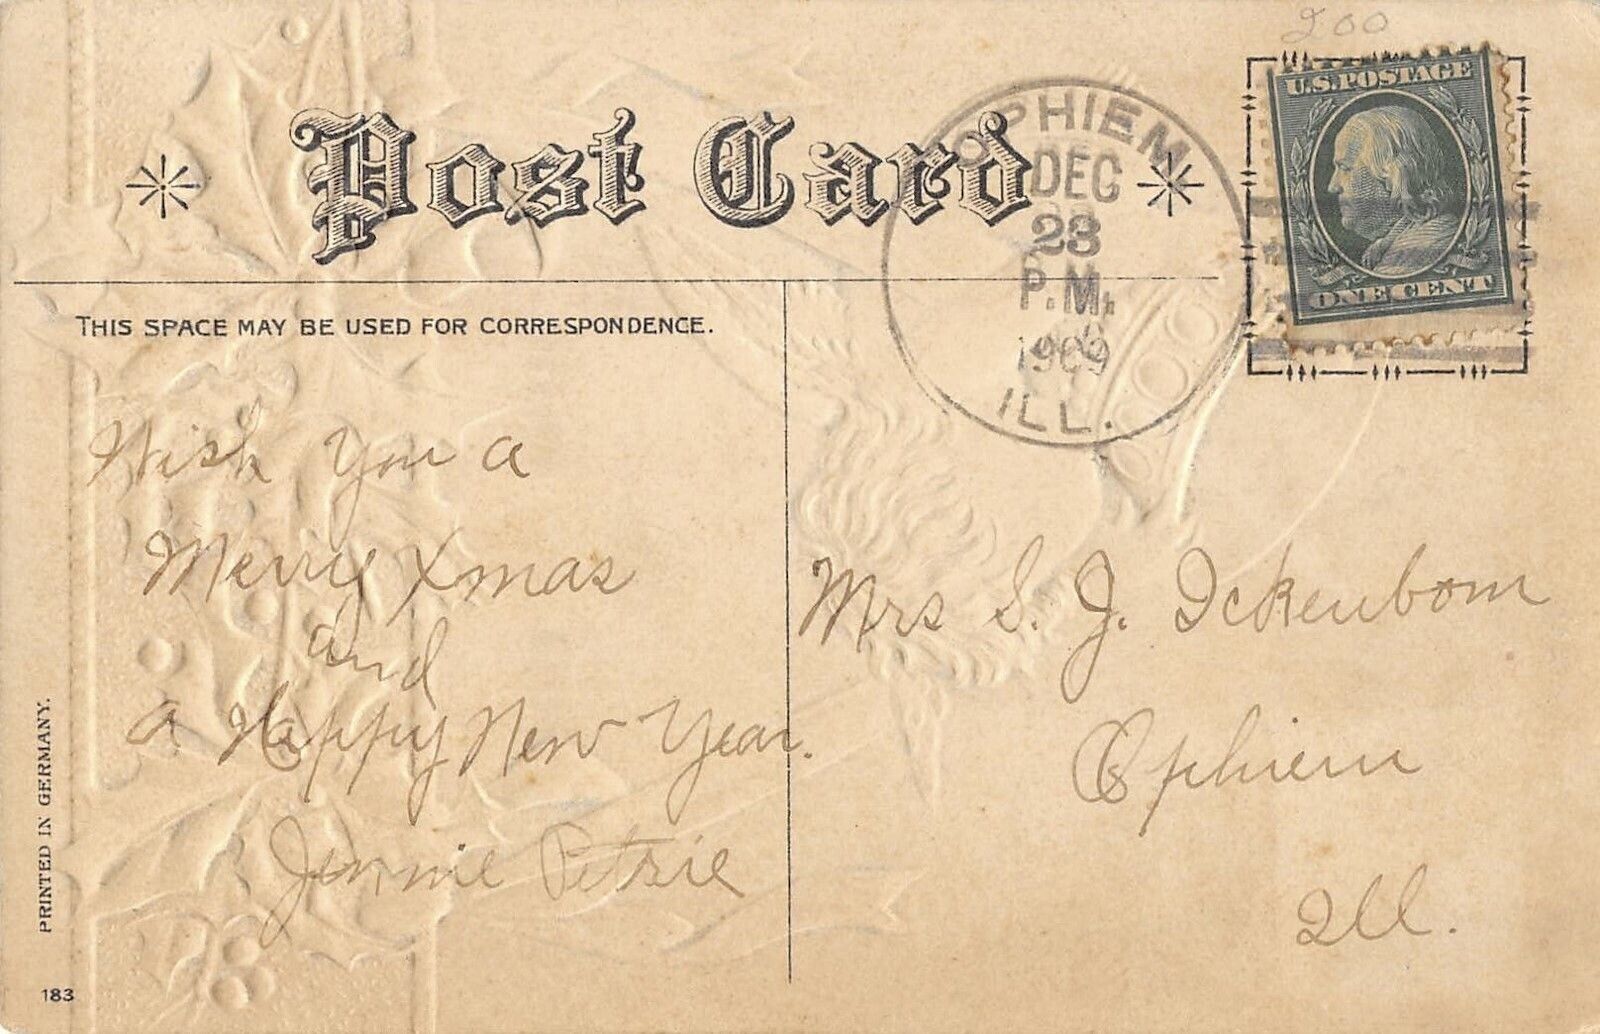 200
Post Card
U.S. POSTAGE
ONE CENT
OPHIEM
DEC
23
P.M.
1909
ILL.
THIS SPACE MAY BE USED FOR CORRESPONDENCE.
Wish You a
Merry Xmas
and
a Happy New Year.
Jennie Petrie
Mrs S. J. Ickenbom
Ophiem
Ill.
PRINTED IN GERMANY.
183